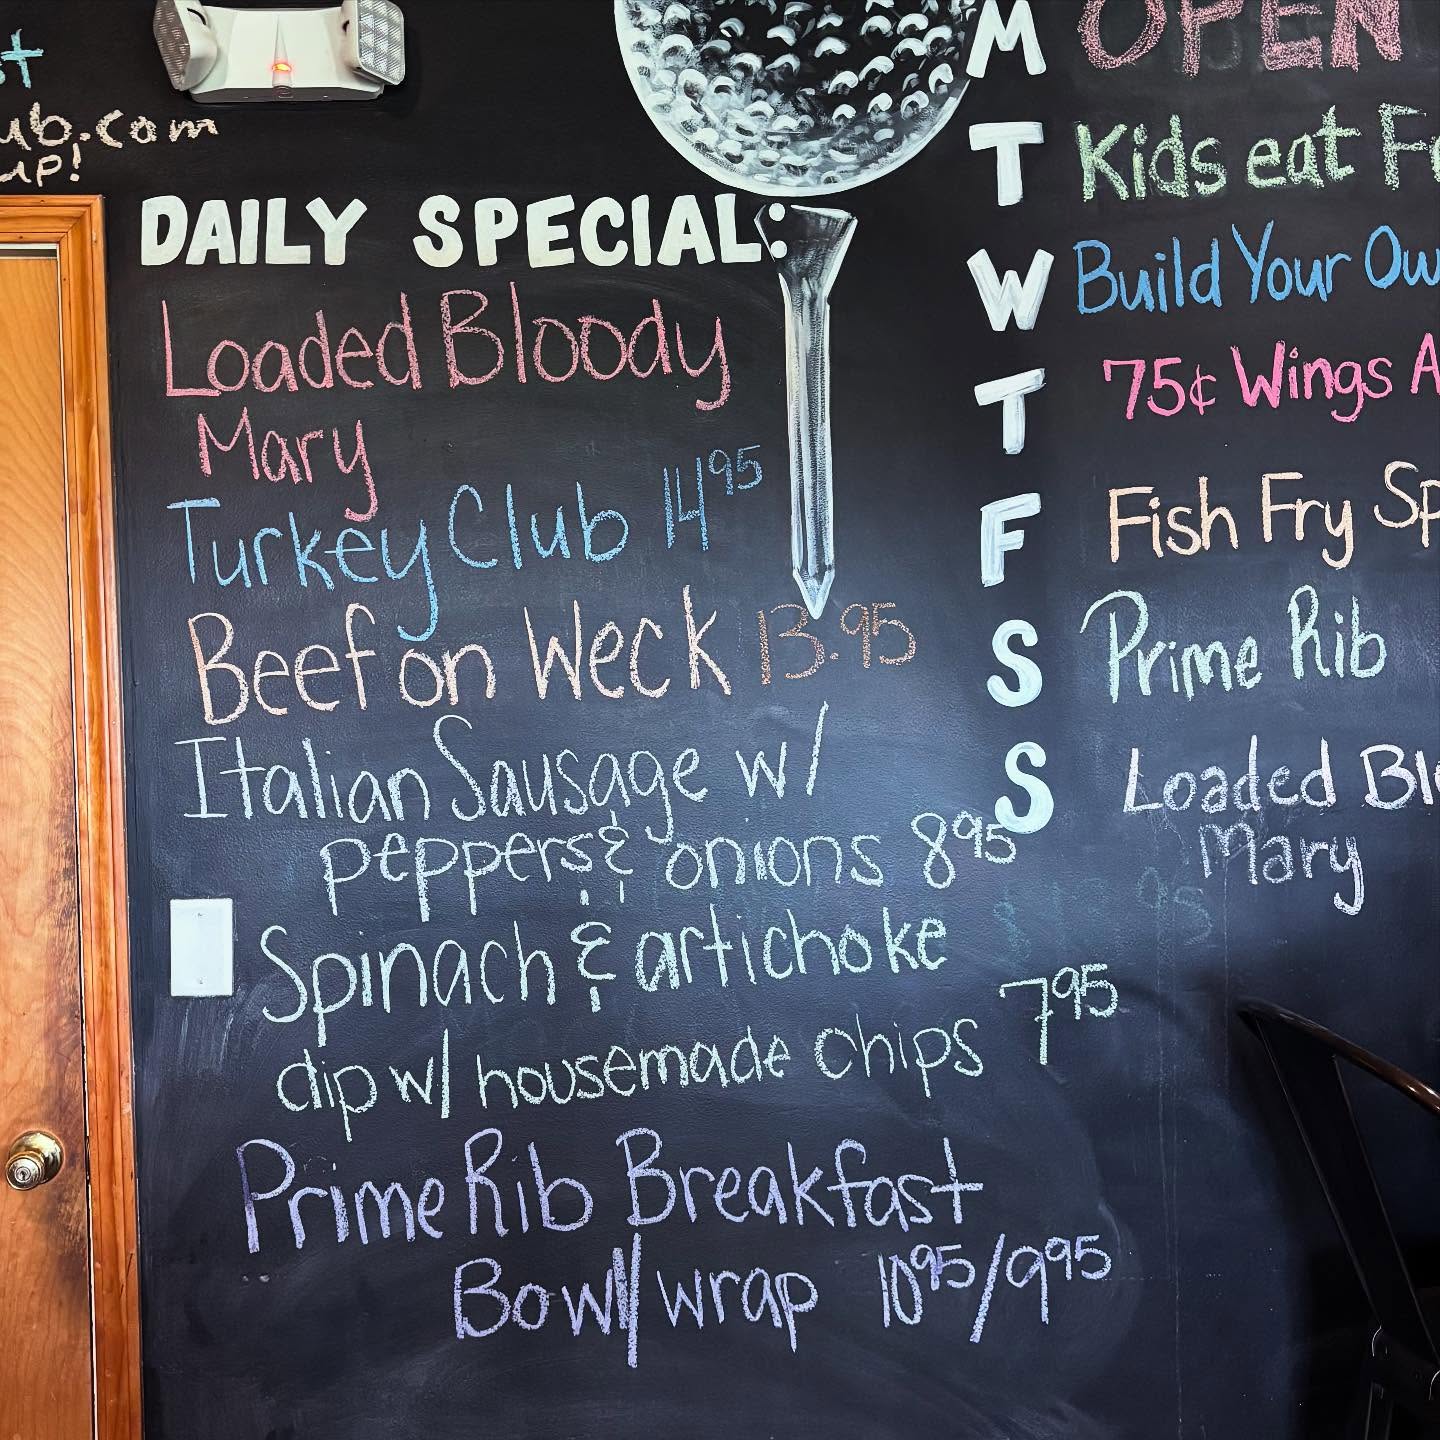 ub.com
up!
DAILY SPECIAL:
Loaded Bloody
Mary
Turkey Club 14 95
Beef on Weck 13.95
Italian Sausage w/
peppers & onions 8 95
Spinach & artichoke
dip w/ housemade chips 7 95
Prime Rib Breakfast
Bowl/wrap 10 95/9 95
M OPEN
T Kids eat F
W Build Your Ow
T 75¢ Wings A
F Fish Fry Sp
S Prime Rib
S Loaded Bl
Mary